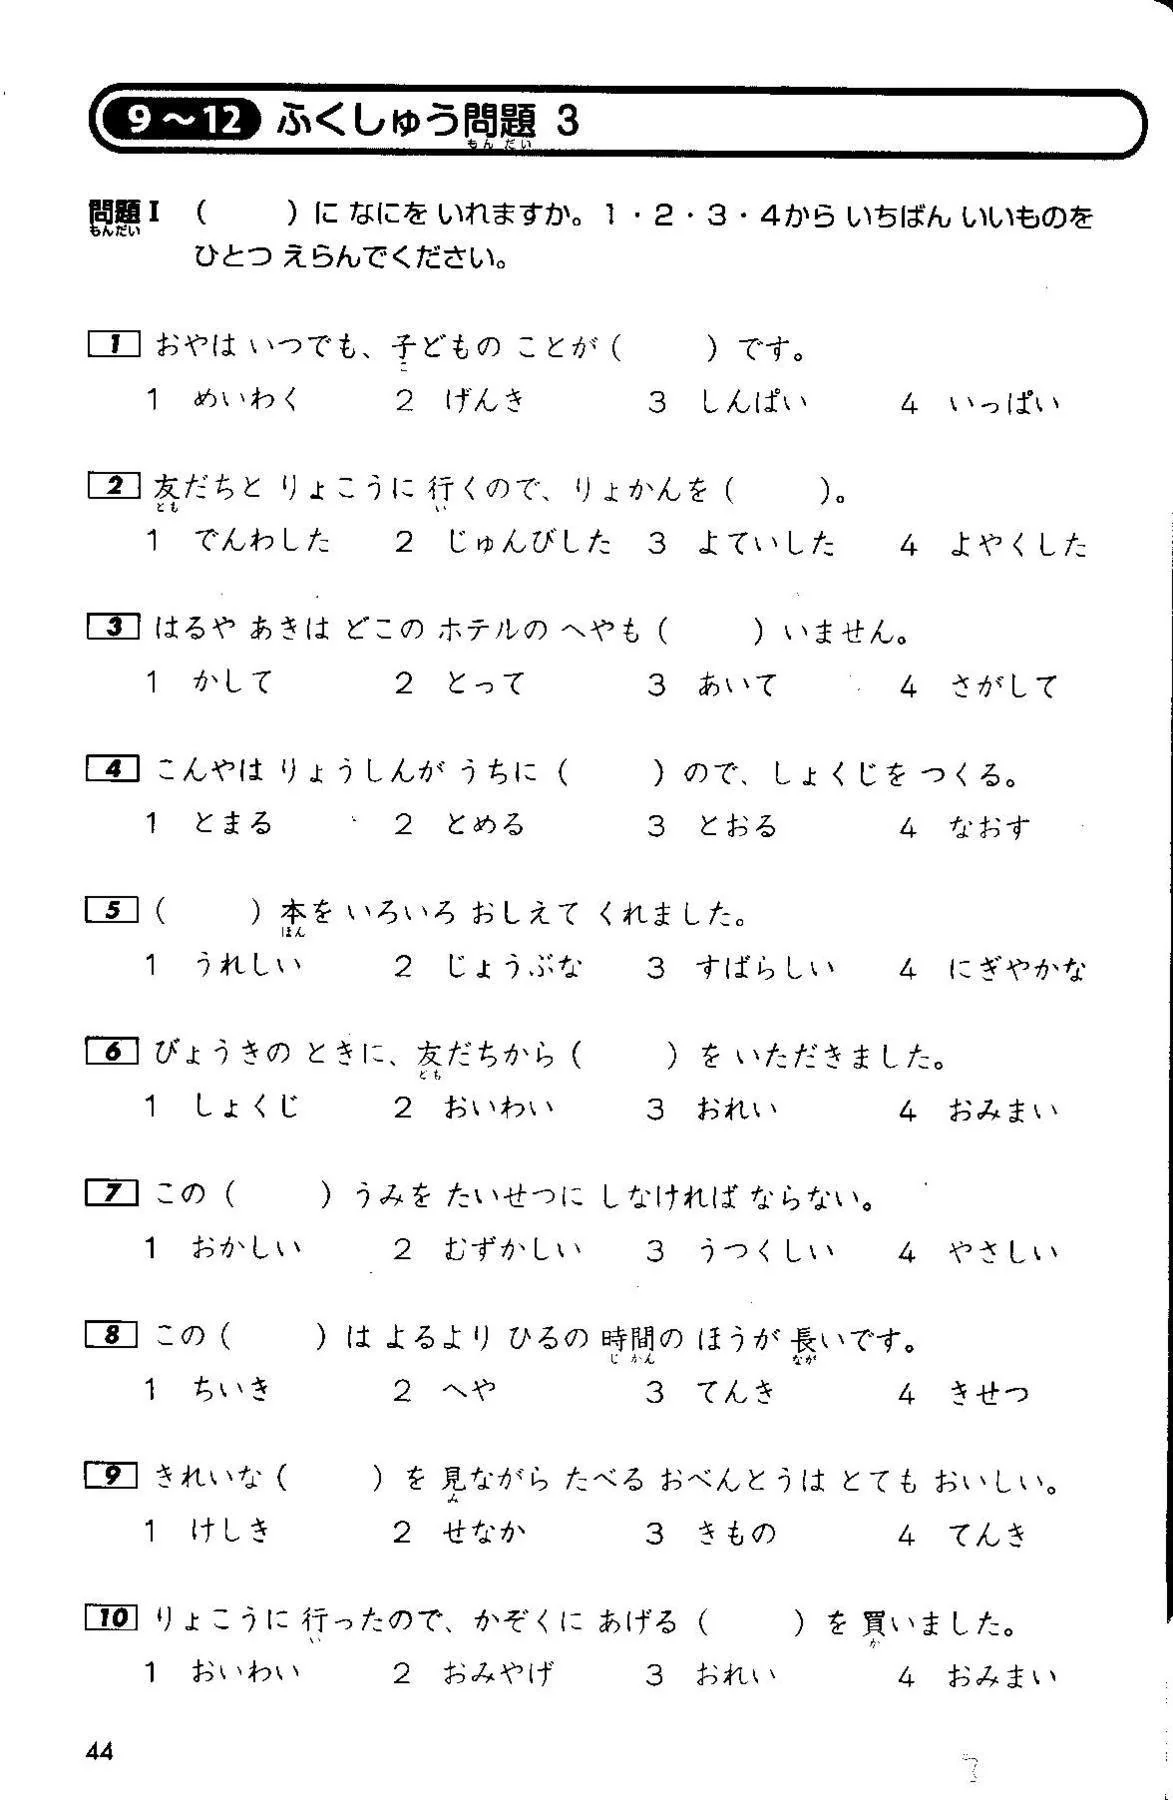 9～12 ふくしゅう問題 3
もんだい
問題Ⅰ （　　　）に なにを いれますか。1・2・3・4から いちばん いいものを
もんだい
ひとつ えらんでください。
1 おやは いつでも、子どもの ことが（　　　）です。
こ
1 めいわく 2 げんき 3 しんぱい 4 いっぱい
2 友だちと りょこうに 行くので、りょかんを（　　　）。
とも い
1 でんわした 2 じゅんびした 3 よていした 4 よやくした
3 はるや あきは どこの ホテルの へやも（　　　）いません。
1 かして 2 とって 3 あいて 4 さがして
4 こんやは りょうしんが うちに（　　　）ので、しょくじを つくる。
1 とまる 2 とめる 3 とおる 4 なおす
5 （　　　）本を いろいろ おしえて くれました。
ほん
1 うれしい 2 じょうぶな 3 すばらしい 4 にぎやかな
6 びょうきの ときに、友だちから（　　　）を いただきました。
とも
1 しょくじ 2 おいわい 3 おれい 4 おみまい
7 この（　　　）うみを たいせつに しなければ ならない。
1 おかしい 2 むずかしい 3 うつくしい 4 やさしい
8 この（　　　）は よるより ひるの 時間の ほうが 長いです。
じかん なが
1 ちいき 2 へや 3 てんき 4 きせつ
9 きれいな（　　　）を 見ながら たべる おべんとうは とても おいしい。
み
1 けしき 2 せなか 3 きもの 4 てんき
10 りょこうに 行ったので、かぞくに あげる（　　　）を 買いました。
い か
1 おいわい 2 おみやげ 3 おれい 4 おみまい
44